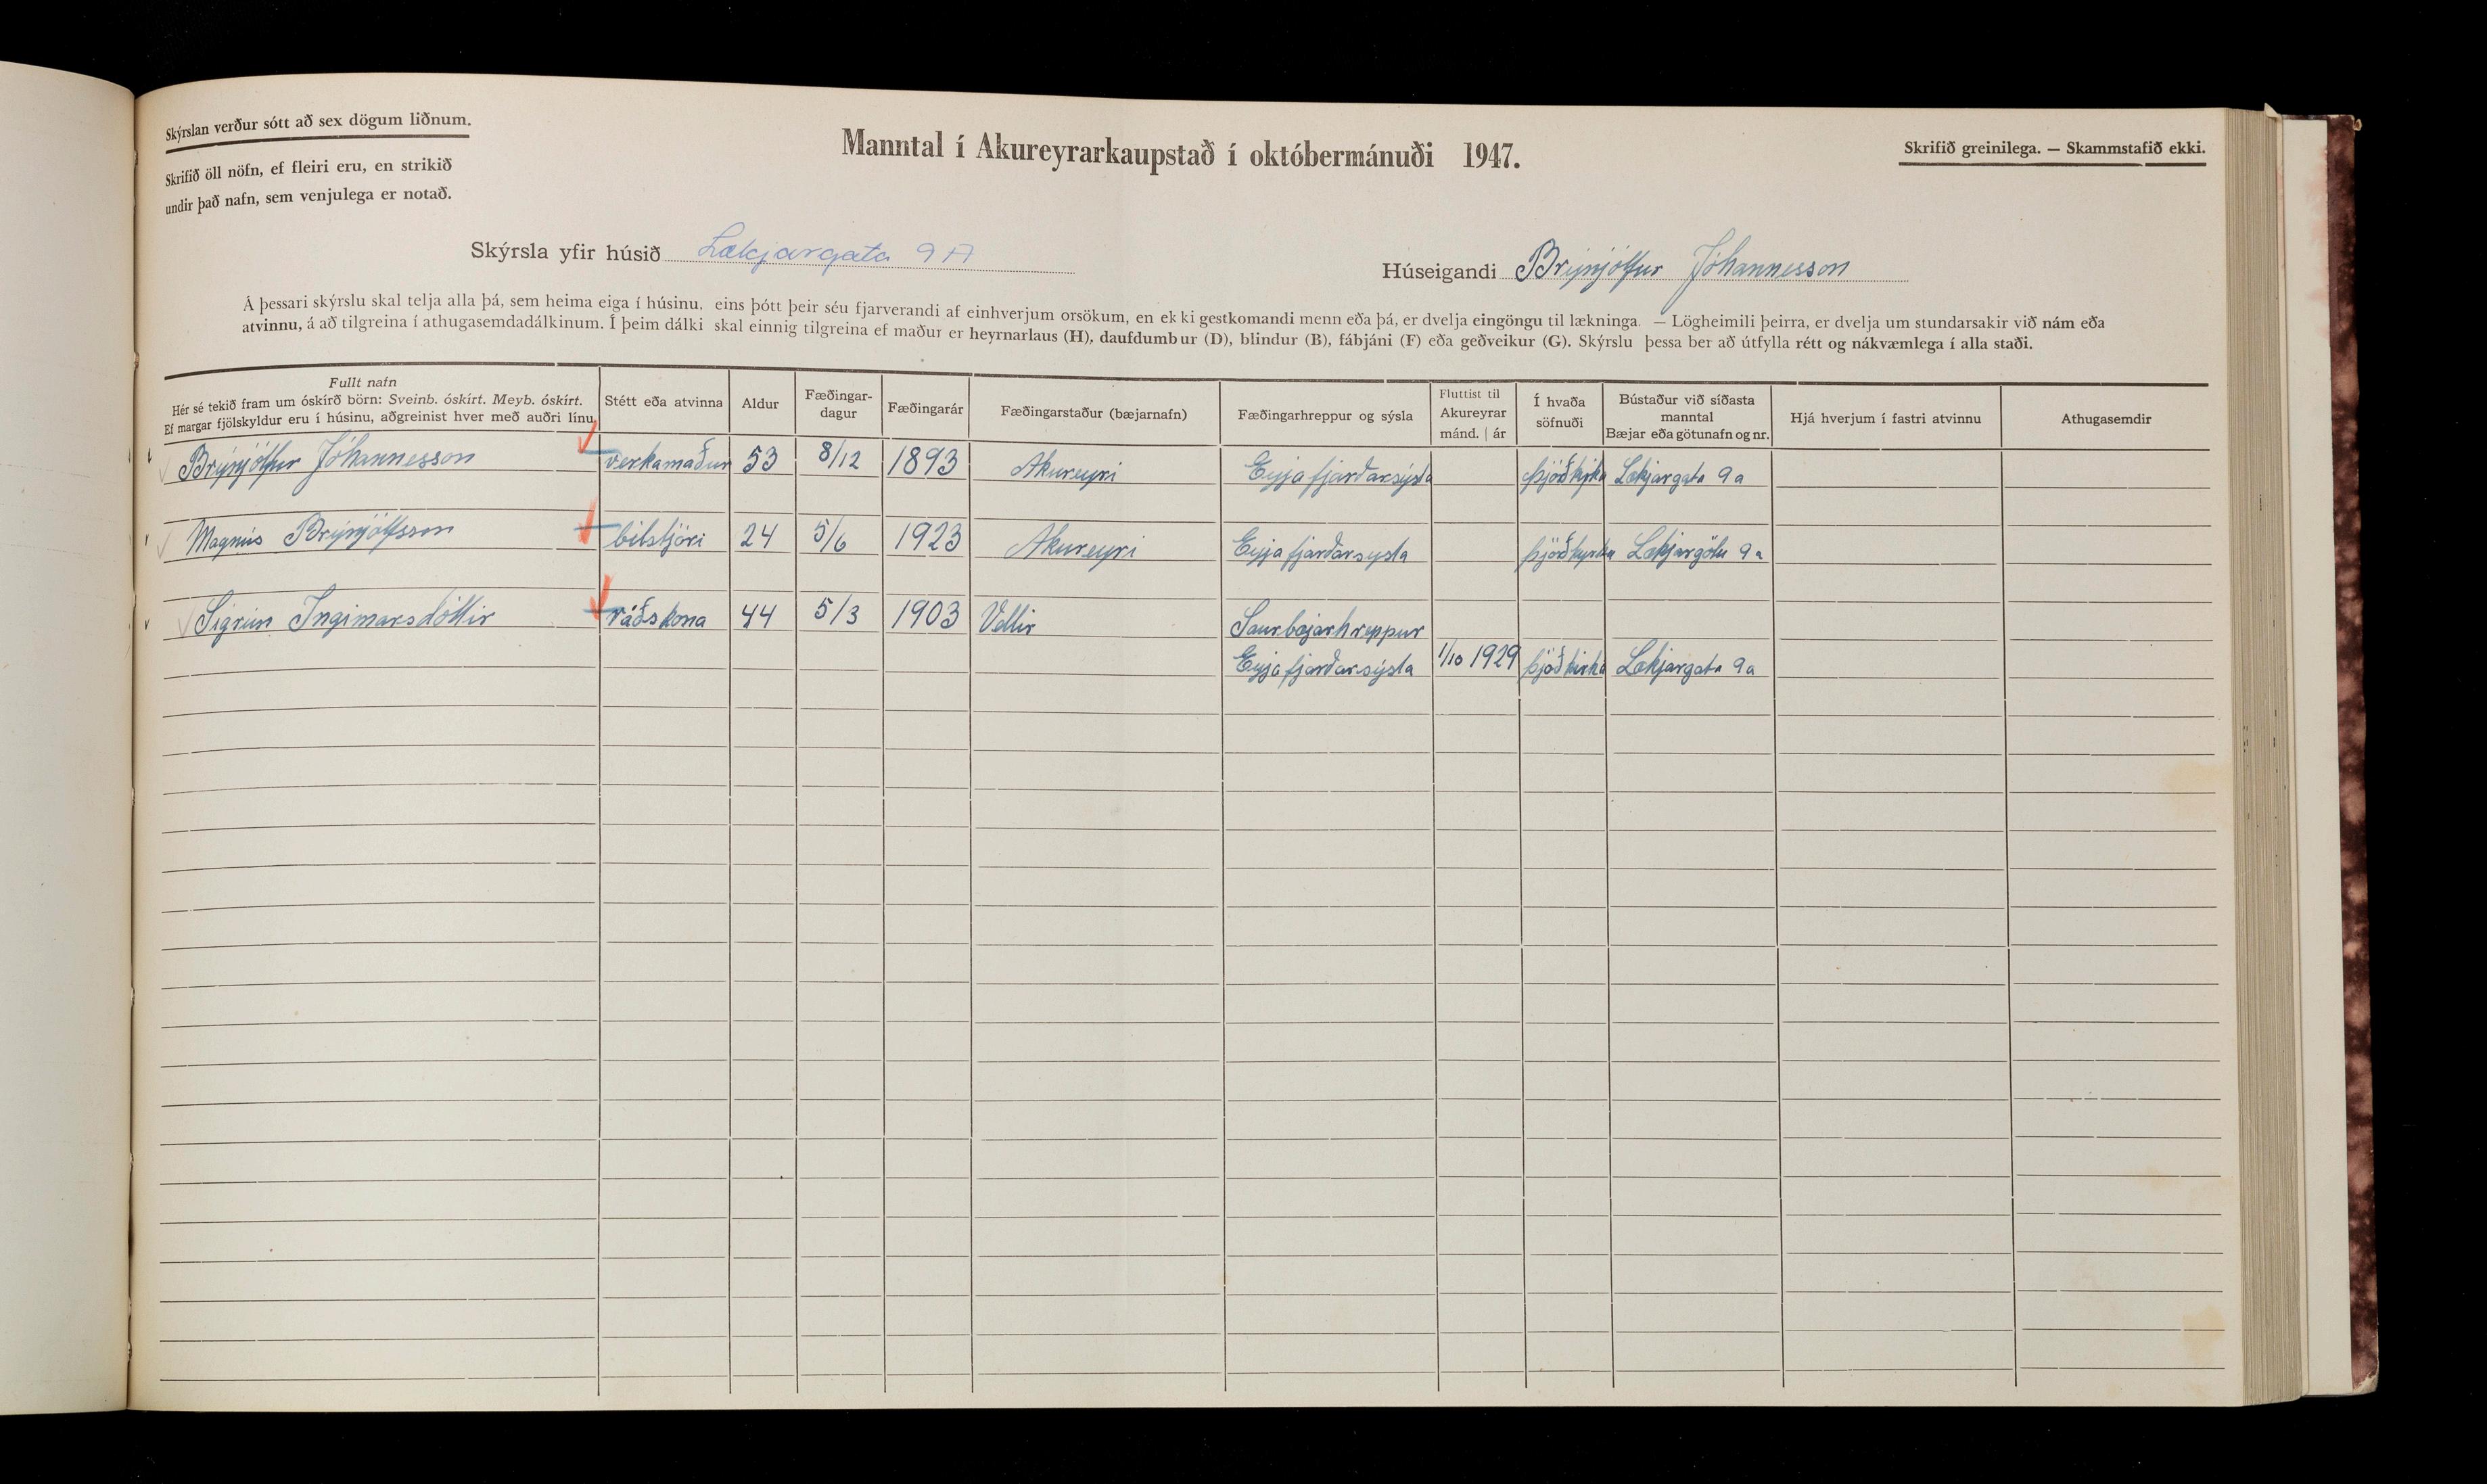 Skýrslan verður sótt að sex dögum liðnum.
Skrifið öll nöfn, ef fleiri eru, en strikið
undir það nafn, sem venjulega er notað.
Manntal í Akureyrarkaupstað í októbermánuði 1947.
Skrifið greinilega. — Skammstafið ekki.
Skýrsla yfir húsið Lækjargata 9A
Húseigandi Brynjólfur Jóhannesson
Á þessari skýrslu skal telja alla þá, sem heima eiga í húsinu, eins þótt þeir séu fjarverandi af einhverjum orsökum, en ekki gestkomandi menn eða þá, er dvelja eingöngu til lækninga. — Lögheimili þeirra, er dvelja um stundarsakir við nám eða
atvinnu, á að tilgreina í athugasemdadálkinum. Í þeim dálki skal einnig tilgreina ef maður er heyrnarlaus (H), daufdumbur (D), blindur (B), fábjáni (F) eða geðveikur (G). Skýrslu þessa ber að útfylla rétt og nákvæmlega í alla staði.
Fullt nafn
Hér sé tekið fram um óskírð börn: Sveinb. óskírt. Meyb. óskírt.
Ef margar fjölskyldur eru í húsinu, aðgreinist hver með auðri línu.
Stétt eða atvinna
Aldur
Fæðingar-
dagur
Fæðingarár
Fæðingarstaður (bæjarnafn)
Fæðingarhreppur og sýsla
Fluttist til
Akureyrar
mánd. | ár
Í hvaða
söfnuði
Bústaður við síðasta
manntal
Bæjar eða götunafn og nr.
Hjá hverjum í fastri atvinnu
Athugasemdir
Brynjólfur Jóhannesson verkamaður 53 8/12 1893 Akureyri Eyjafjarðarsýsla þjóðkirkja Lækjargata 9a
Magnús Brynjólfsson bílstjóri 24 5/6 1923 Akureyri Eyjafjarðarsysla þjóðkyrkja Lækjargötu 9a
Sigrún Ingimarsdóttir ráðskona 44 5/3 1903 Vellir Saurbæjarhreppur
Eyjafjarðarsýsla 1/10 1929 þjóðkirkja Lækjargata 9a